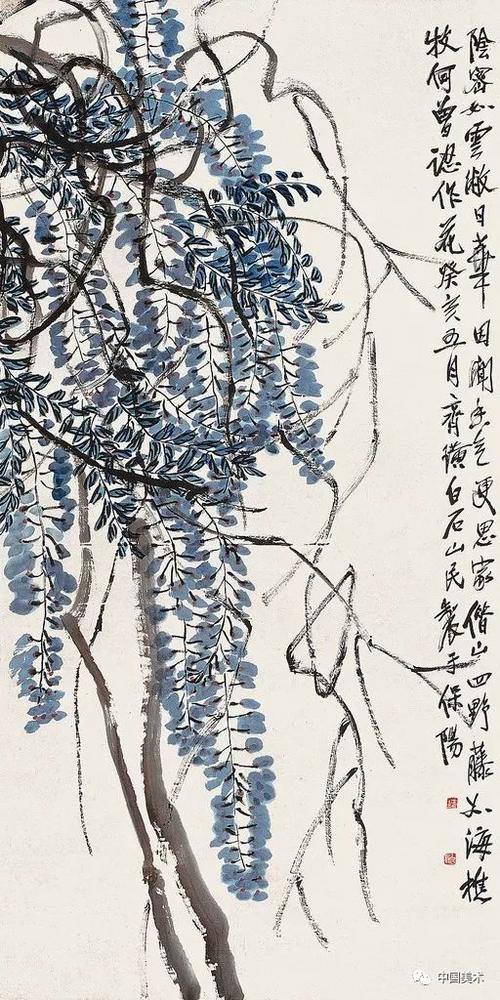 陰密如雲蔽日華因聞香气更思家借山四野藤如海樵
牧何曾認作花癸亥五月齊璜白石山民製于保陽
中国美术